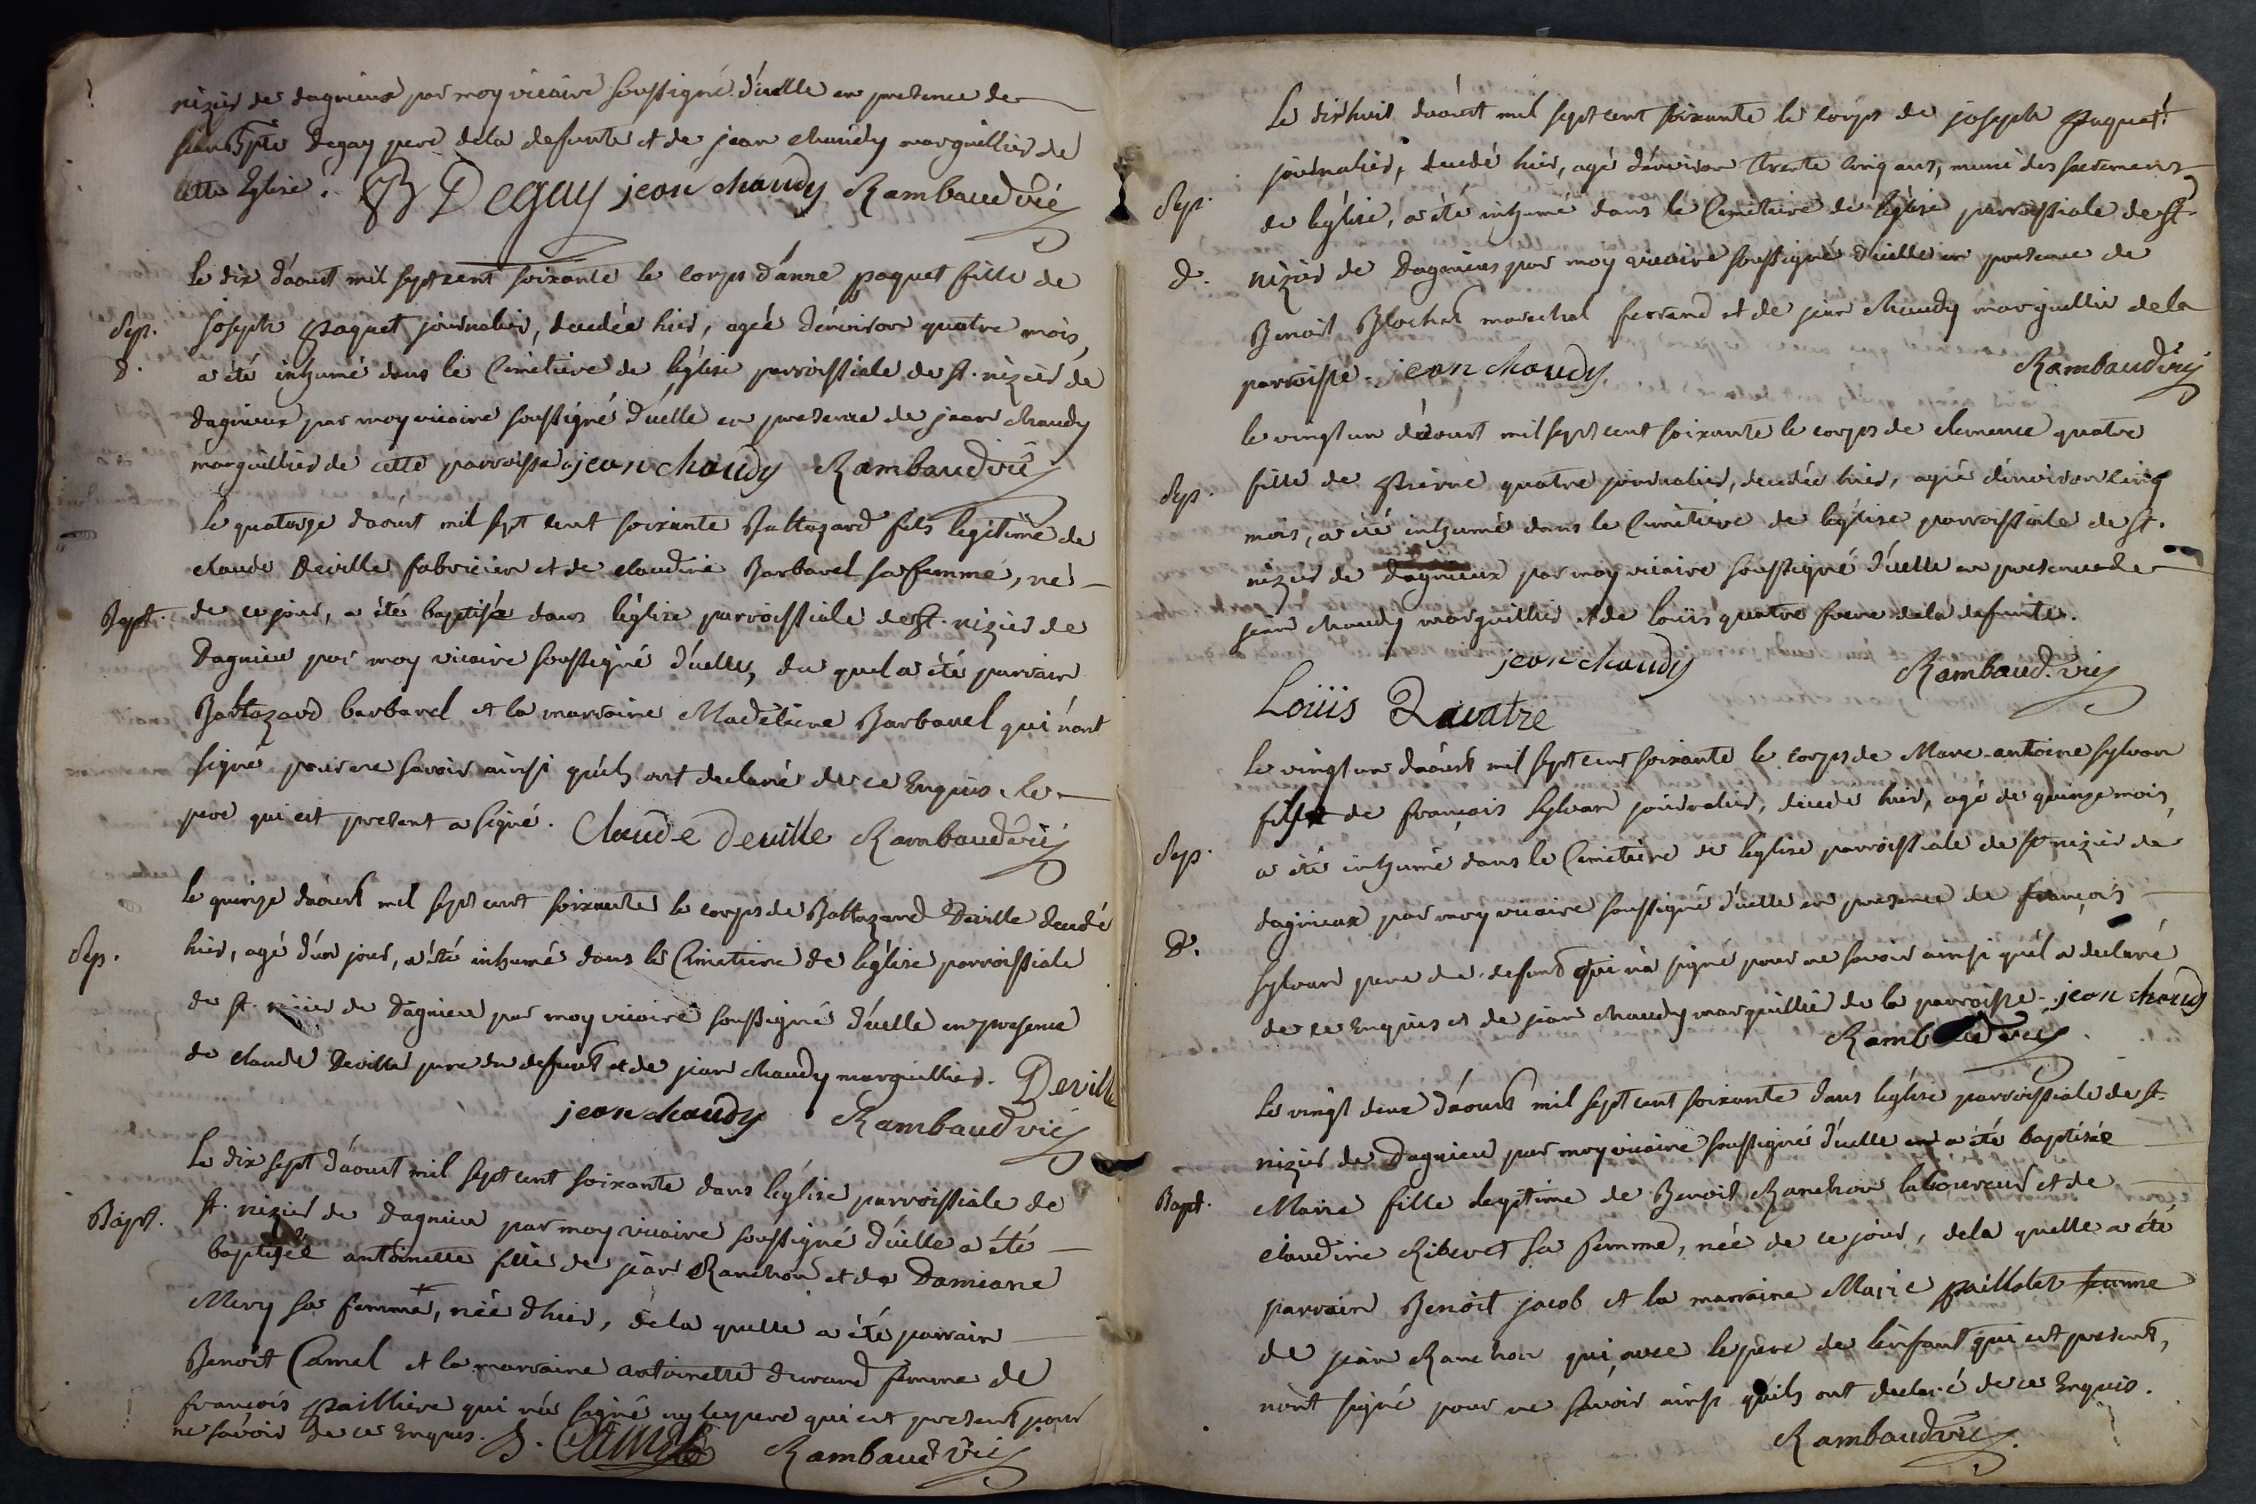 nizier de dagnieux par moy vicaire soussigné d'icelle en presence de
Degay pere dela defunte et de jean chaudy marguillier de
cette Eglise. Degay jean chaudy Rambaud vic
le dix d'aoust mil sept cent soixante le corps d'anne paquet fille de
Sep. joseph paquet journalier, decedée hier, agée d'environ quatre mois,
d. a été inhumé dans le Cimetiere de l'église parroissiale de st. nizier de
dagnieux par moy vicaire soussigné d'icelle en presence de jean chaudy
marguillier de cette parroisse jean chaudy Rambaud vic
le quatorze daoust mil sept cent soixante Baltazard fils legitime de
claude Deville fabricien et de claudine Barbarel sa femme, né
Bapt. de ce jour, a été baptisé dans l'église parroissiale de st. nizier de
Dagnieu par moy vicaire soussigné d'icelle, du quel a été parrain
Baltazard barbarel et la marraine Madeleine Barbarel qui n'ont
signé pour ne savoir ainsi qu'ils ont declaré de ce Enquis. le
pere qui est present a signé. Claude deville Rambaud vic
le quinze daoust mil sept cent soixante le corps de Baltazard Deville decedé
Sep. hier, agé d'un jour, a été inhumé dans le Cimetiere de l'église parroissiale
de st. nizier de Dagnieu par moy vicaire soussigné d'icelle en presence
de claude Deville pere du defunt et de jean chaudy marguillier. Deville
jean chaudy Rambaud vic
Le dix sept d'aoust mil sept cent soixante dans l'église parroissiale de
Bapt. st. nizier de Dagnieu par moy vicaire soussigné d'icelle a été
baptisée antoinette fille de jean Ranchon et de Damiane
Mery sa femme, née d'hier, de la quelle a été parrain
Benoit Camel et la marraine antoinette durand femme de
françois pailliere qui n'a signé ny le pere qui est present pour
ne savoir de ce enquis. B. Camel Rambaud vic
Le dixhuit daoust mil sept cent soixante le corps de joseph paquet
journalier, decedé hier, agé d'environ trente cinq ans, muni des sacremens
Sep. de l'église, a été inhumé dans le Cimetiere de l'église parroissiale de st.
d. nizier de Dagnieux par moy vicaire soussigné d'icelle en presence de
Benoit Blochet marechal ferrand et de jean chaudy marguillier de la
parroisse. jean chaudy Rambaud vic
le vingt un d'aoust mil sept cent soixante le corps de clemence quatre
Sep. fille de pierre quatre journalier, decedée hier, agée d'environ cinq
mois, a été inhumé dans le Cimetiere de l'église parroissiale de st.
nizier de dagnieux par moy vicaire soussigné d'icelle en presence de
jean chaudy marguillier et de loüis quatre frere de la defunte.
jean chaudy Rambaud. vic
Loüis Quatre
le vingt un daoust mil sept cent soixante le corps de Marc-antoine sylvan
fils de françois sylvan journalier, decedé hier, agé de quinze mois,
Sep. a été inhumé dans le Cimetiere de l'église parroissiale de st nizier de
dagnieux par moy vicaire soussigné d'icelle en presence de françois
d. sylvan pere du defunt qui n'a signé pour ne savoir ainsi qu'il a declaré
de ce Enquis et de jean chaudy marguillier de la parroisse. jean chaudy
Rambaud vic
Le vingt deux d'aoust mil sept cent soixante dans l'église parroissiale de st.
nizier de Dagnieu par moy vicaire soussigné d'icelle a été baptisée
Bapt. Marie fille legitime de Benoit Ranchon laboureur et de
claudine Riberet sa femme, née de ce jour, dela quelle a été
parrain Benoit jacob et la marraine Marie paillolet femme
de jean Ranchon qui, avec le pere de l'enfant qui est present,
n'ont signé pour ne savoir ainsi qu'ils ont declaré de ce Enquis.
Rambaud vic